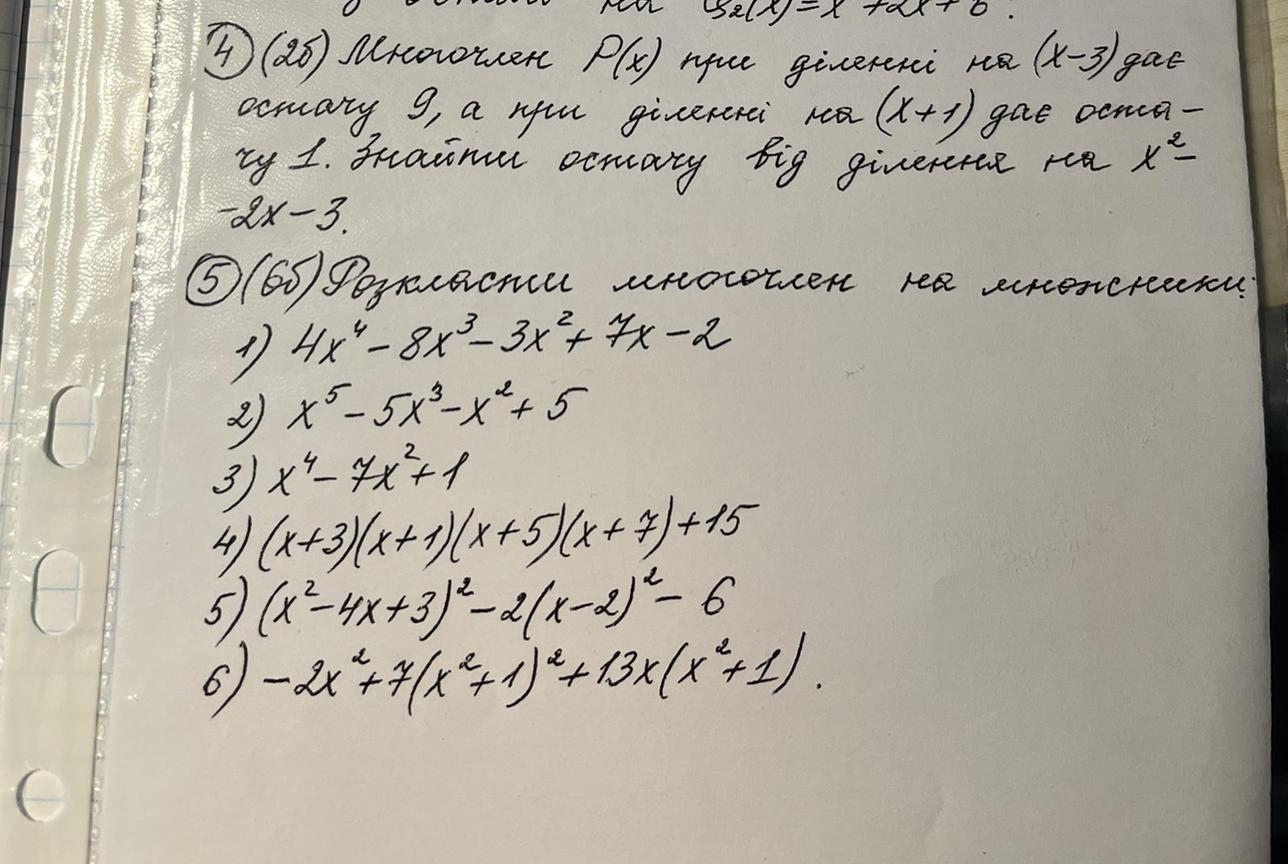 на Q₂(x)=x²+2x+6.
④ (2б) Многочлен P(x) при діленні на (x-3) дає
остачу 9, а при діленні на (x+1) дає оста-
чу 1. Знайти остачу від ділення на x²-
-2x-3.
⑤ (6б) Розкласти многочлен на множники:
1) 4x⁴-8x³-3x²+7x-2
2) x⁵-5x³-x²+5
3) x⁴-7x²+1
4) (x+3)(x+1)(x+5)(x+7)+15
5) (x²-4x+3)²-2(x-2)²-6
6) -2x²+7(x²+1)²+13x(x²+1).